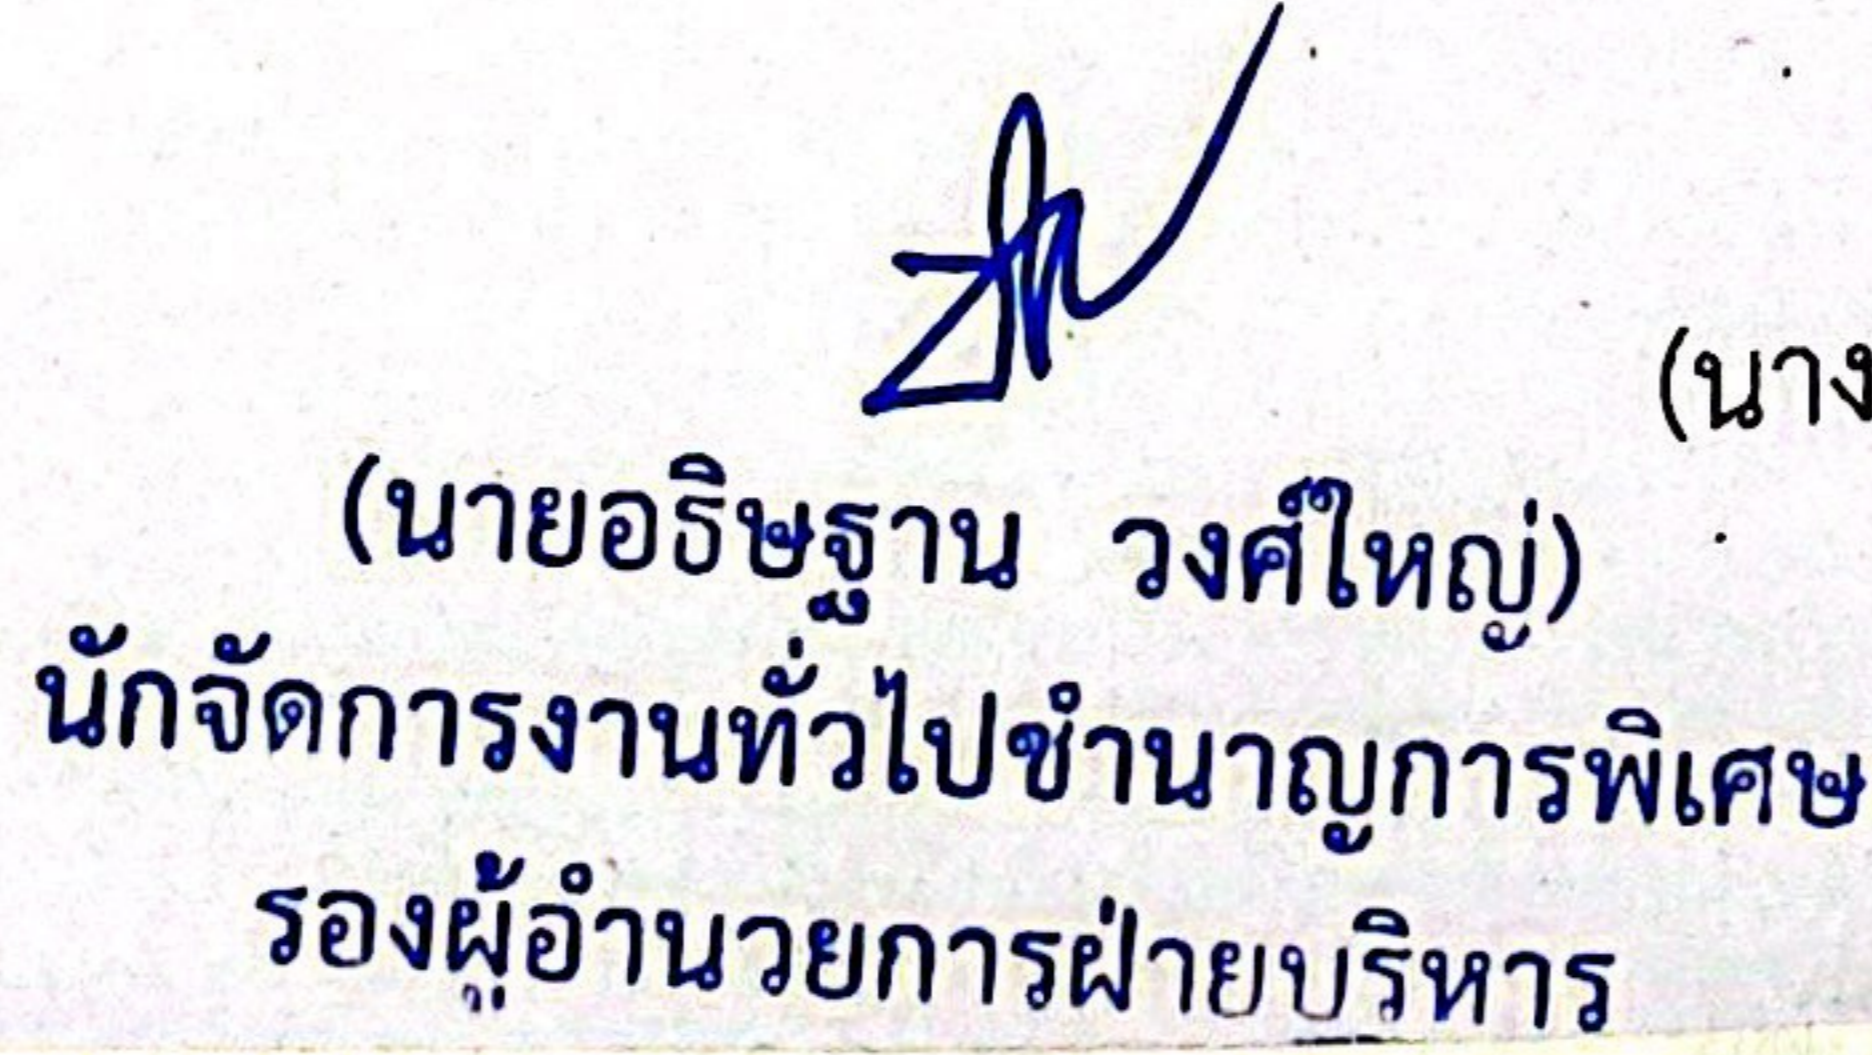 (นาง
(นายอธิษฐาน วงศ์ใหญ่)
นักจัดการงานทั่วไปชำนาญการพิเศษ
รองผู้อำนวยการฝ่ายบริหาร